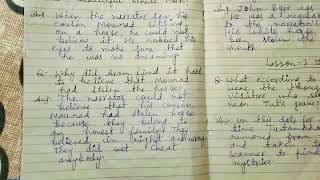 beautiful white horse
Ans When the narrator saw his
cousin Mourad sitting
on a horse, he could not
believe it. He rubbed his
eyes to make sure that
he was no dreaming.
Q- Why did Aram find it hard
to believe that Mourad
had stolen the horse.
Ans The narrator could not
believe that his cousin
Mourad had stolen horse
because they belong to
an honest family. They
believed in bright and wrong
They did not cheat
anybody.
Ans John Byro was
He was a
to the narrator's
His white horse
was stolen
month
Lesson-3
Q- What according to
were the
visitors who
near Tut's grave
On this date for
time Tutankhamun
removed from
and taken
scanner to find
mysteries